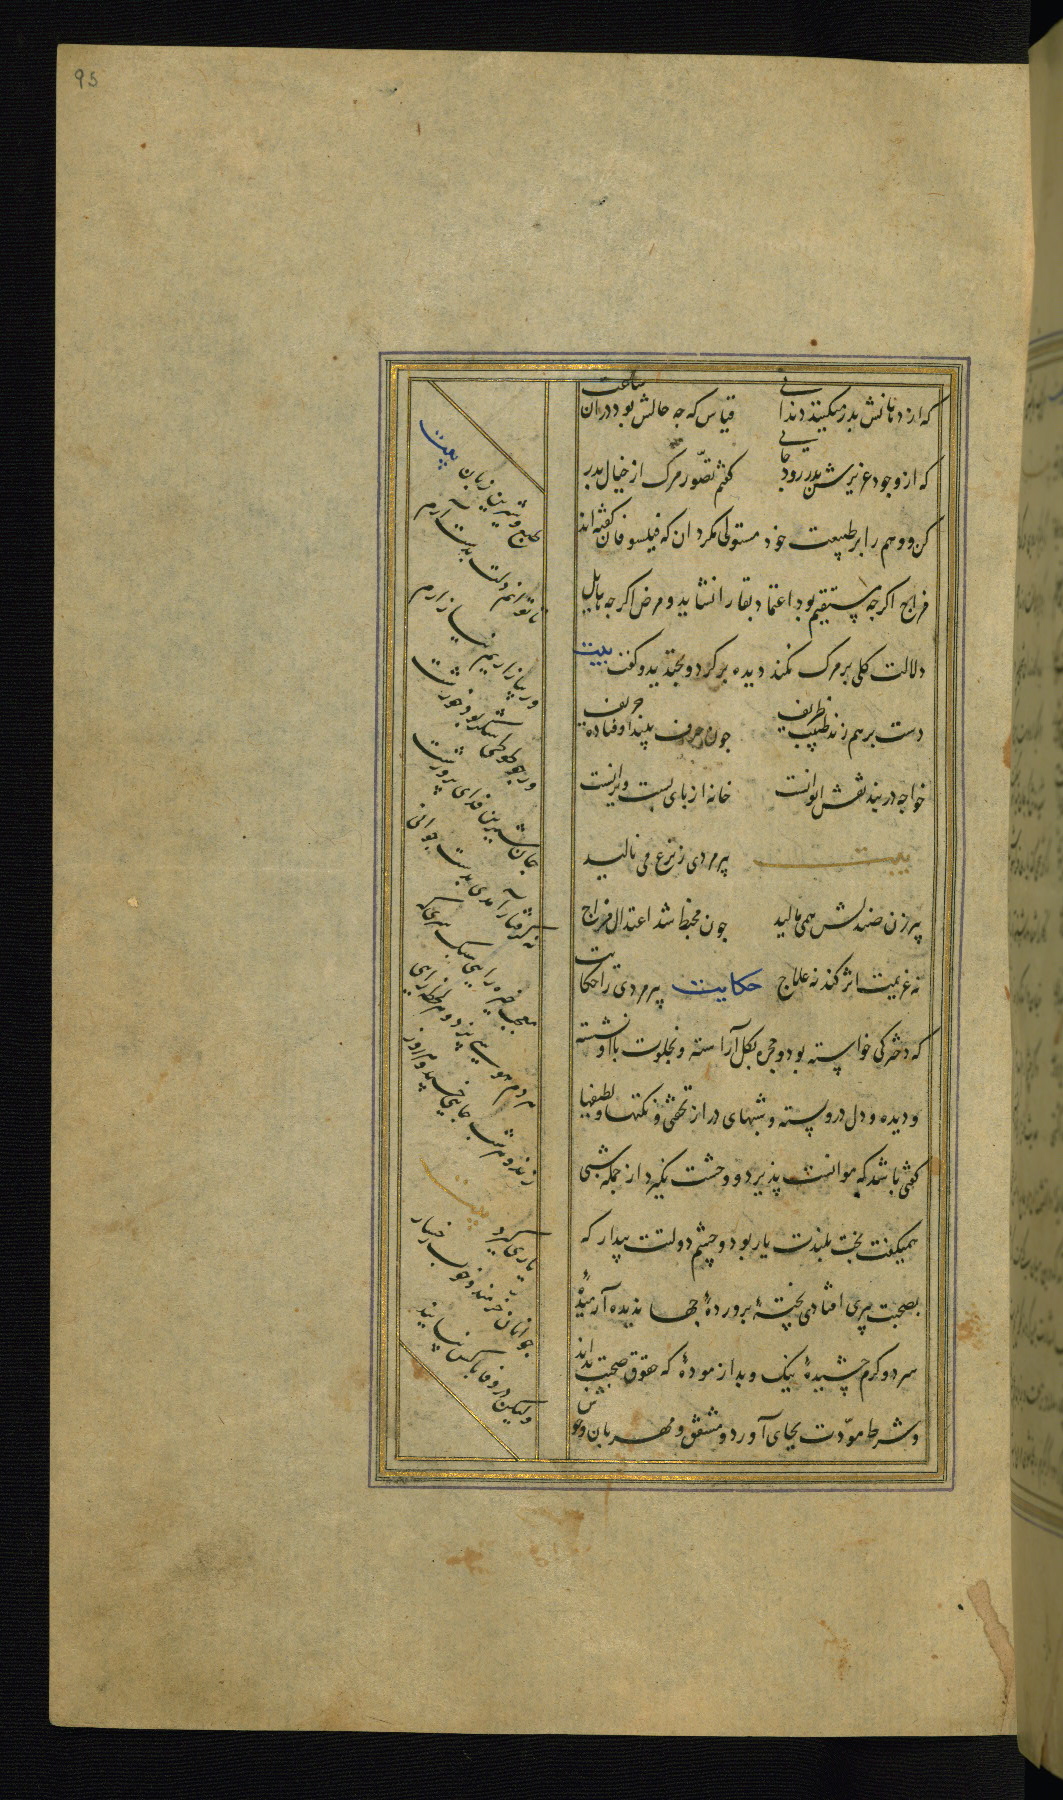 95
که از دهانش بدر میکنند دندانی قیاس که چه حالش بود دران ساعت
که از وجود عزیزش بدر رود جانی گفتم تصوّر مرک از خیال بدر
کن و وهم را بر طبیعت خود مستولی مکردان که فیلسوفان گفته اند
مزاج اکرچه مستقیم بود اعتماد بقا را نشاید و مرض اکرچه هایل
دلالت کلی بر مرک نکند دیده برکرد و بخندید و کفت بیت
دست بر هم زند طبیب ظریف چون حرف بیند اوفتاده حریف
خواجه دربند نقش ایوانست خانه از پای بست ویرانست
بیت پیرمردی ز نزع می نالید
پیرزن صندلش همی مالید چون مخبط شد اعتدال مزاج
نه عزیمت اثر کند نه علاج حکایت پیرمردی را حکایت
که دخترکی خواسته بود و حجره بکل آراسته و بخلوت با او نشسته
و دیده و دل درو بسته و شبهای دراز نخفتی و نکتها و لطیفها
کفتی باشد که موانست پذیرد و وحشت نکیرد از جمله شبی
همیکفت بخت بلندت یار بود و چشم دولتت بیدار که
بصحبت پیری افتادی پختهٔ پروردهٔ جهاندیده آرمیدهٔ
سرد و کرم چشیدهٔ نیک و بد ازمودهٔ که حقوق صحبت بداند
و شرط مودّت بجای آورد و مشفق و مهربان و خوش
طبع و شیرین زبان بیت
تا توانم دلت بدست آرم
ور بیازاریم نیازارم
ور چو طوطی شکر بود خورشت
جان شیرین فدای پرورشت
نه گرفتار آمدی بدست جوانی
معجب خیره رای سبک سری که
هر دم هوسی پزد و هر لحظه رایی
زند و هر شب جایی خسبد و هر روز
یاری گیرد بیت
جوانان خرمند و خوب رخسار
ولیکن در وفا با کس نپایند